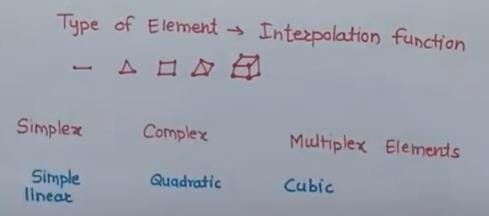 Type of Element → Interpolation function
Simplex Complex Multiplex Elements
Simple Quadratic Cubic
linear